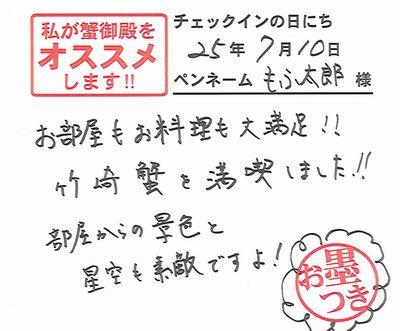 私が蟹御殿を
オススメ
します!!
チェックインの日にち
25年7月10日
ペンネーム もふ太郎 様
お部屋もお料理も大満足!!
竹崎蟹を満喫しました!!
部屋からの景色と
星空も素敵ですよ!
お墨つき